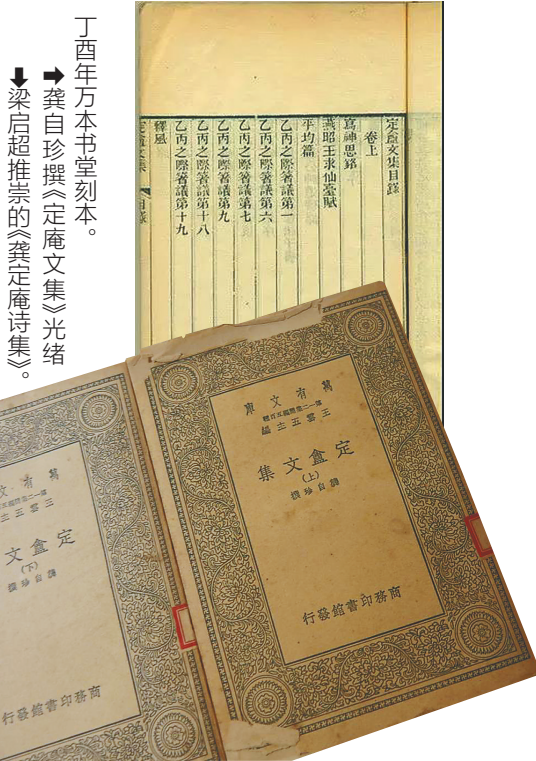 ➡龚自珍撰《定庵文集》光绪
丁酉年万本书堂刻本。
⬇梁启超推崇的《龚定庵诗集》。
定盦文集目錄
卷上
寫神思銘
燕昭王求仙臺賦
平均篇
乙丙之際箸議第一
乙丙之際箸議第六
乙丙之際箸議第七
乙丙之際箸議第九
乙丙之際箸議第十八
乙丙之際箸議第十九
釋風
定盦文集
目錄
萬有文庫
第一二集簡編五百種
王雲五主編
定盦文集
(上)
龔自珍撰
商務印書館發行
萬有文
王雲五主
定盦文
(下)
龔自珍撰
商務印書館發行